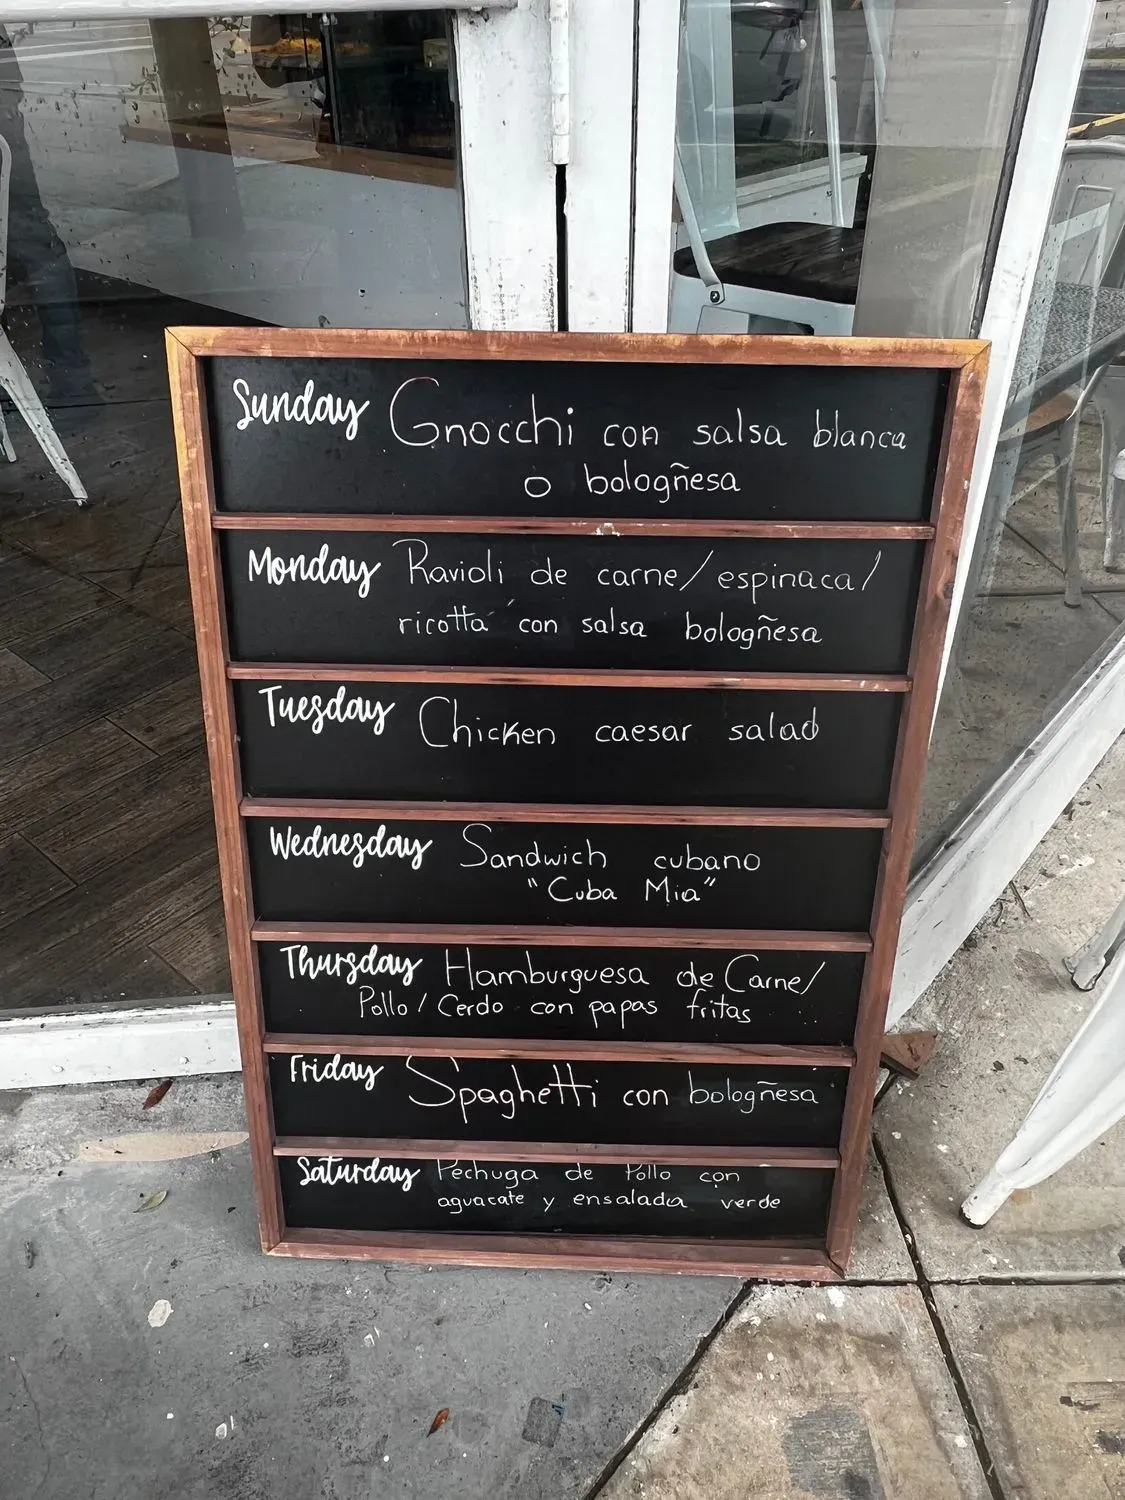 Sunday Gnocchi con salsa blanca
o bologñesa
Monday Ravioli de carne/espinaca/
ricotta con salsa bologñesa
Tuesday Chicken caesar salad
Wednesday Sandwich cubano
"Cuba Mia"
Thursday Hamburguesa de Carne/
Pollo/Cerdo con papas fritas
Friday Spaghetti con bologñesa
Saturday Pechuga de Pollo con
aguacate y ensalada verde